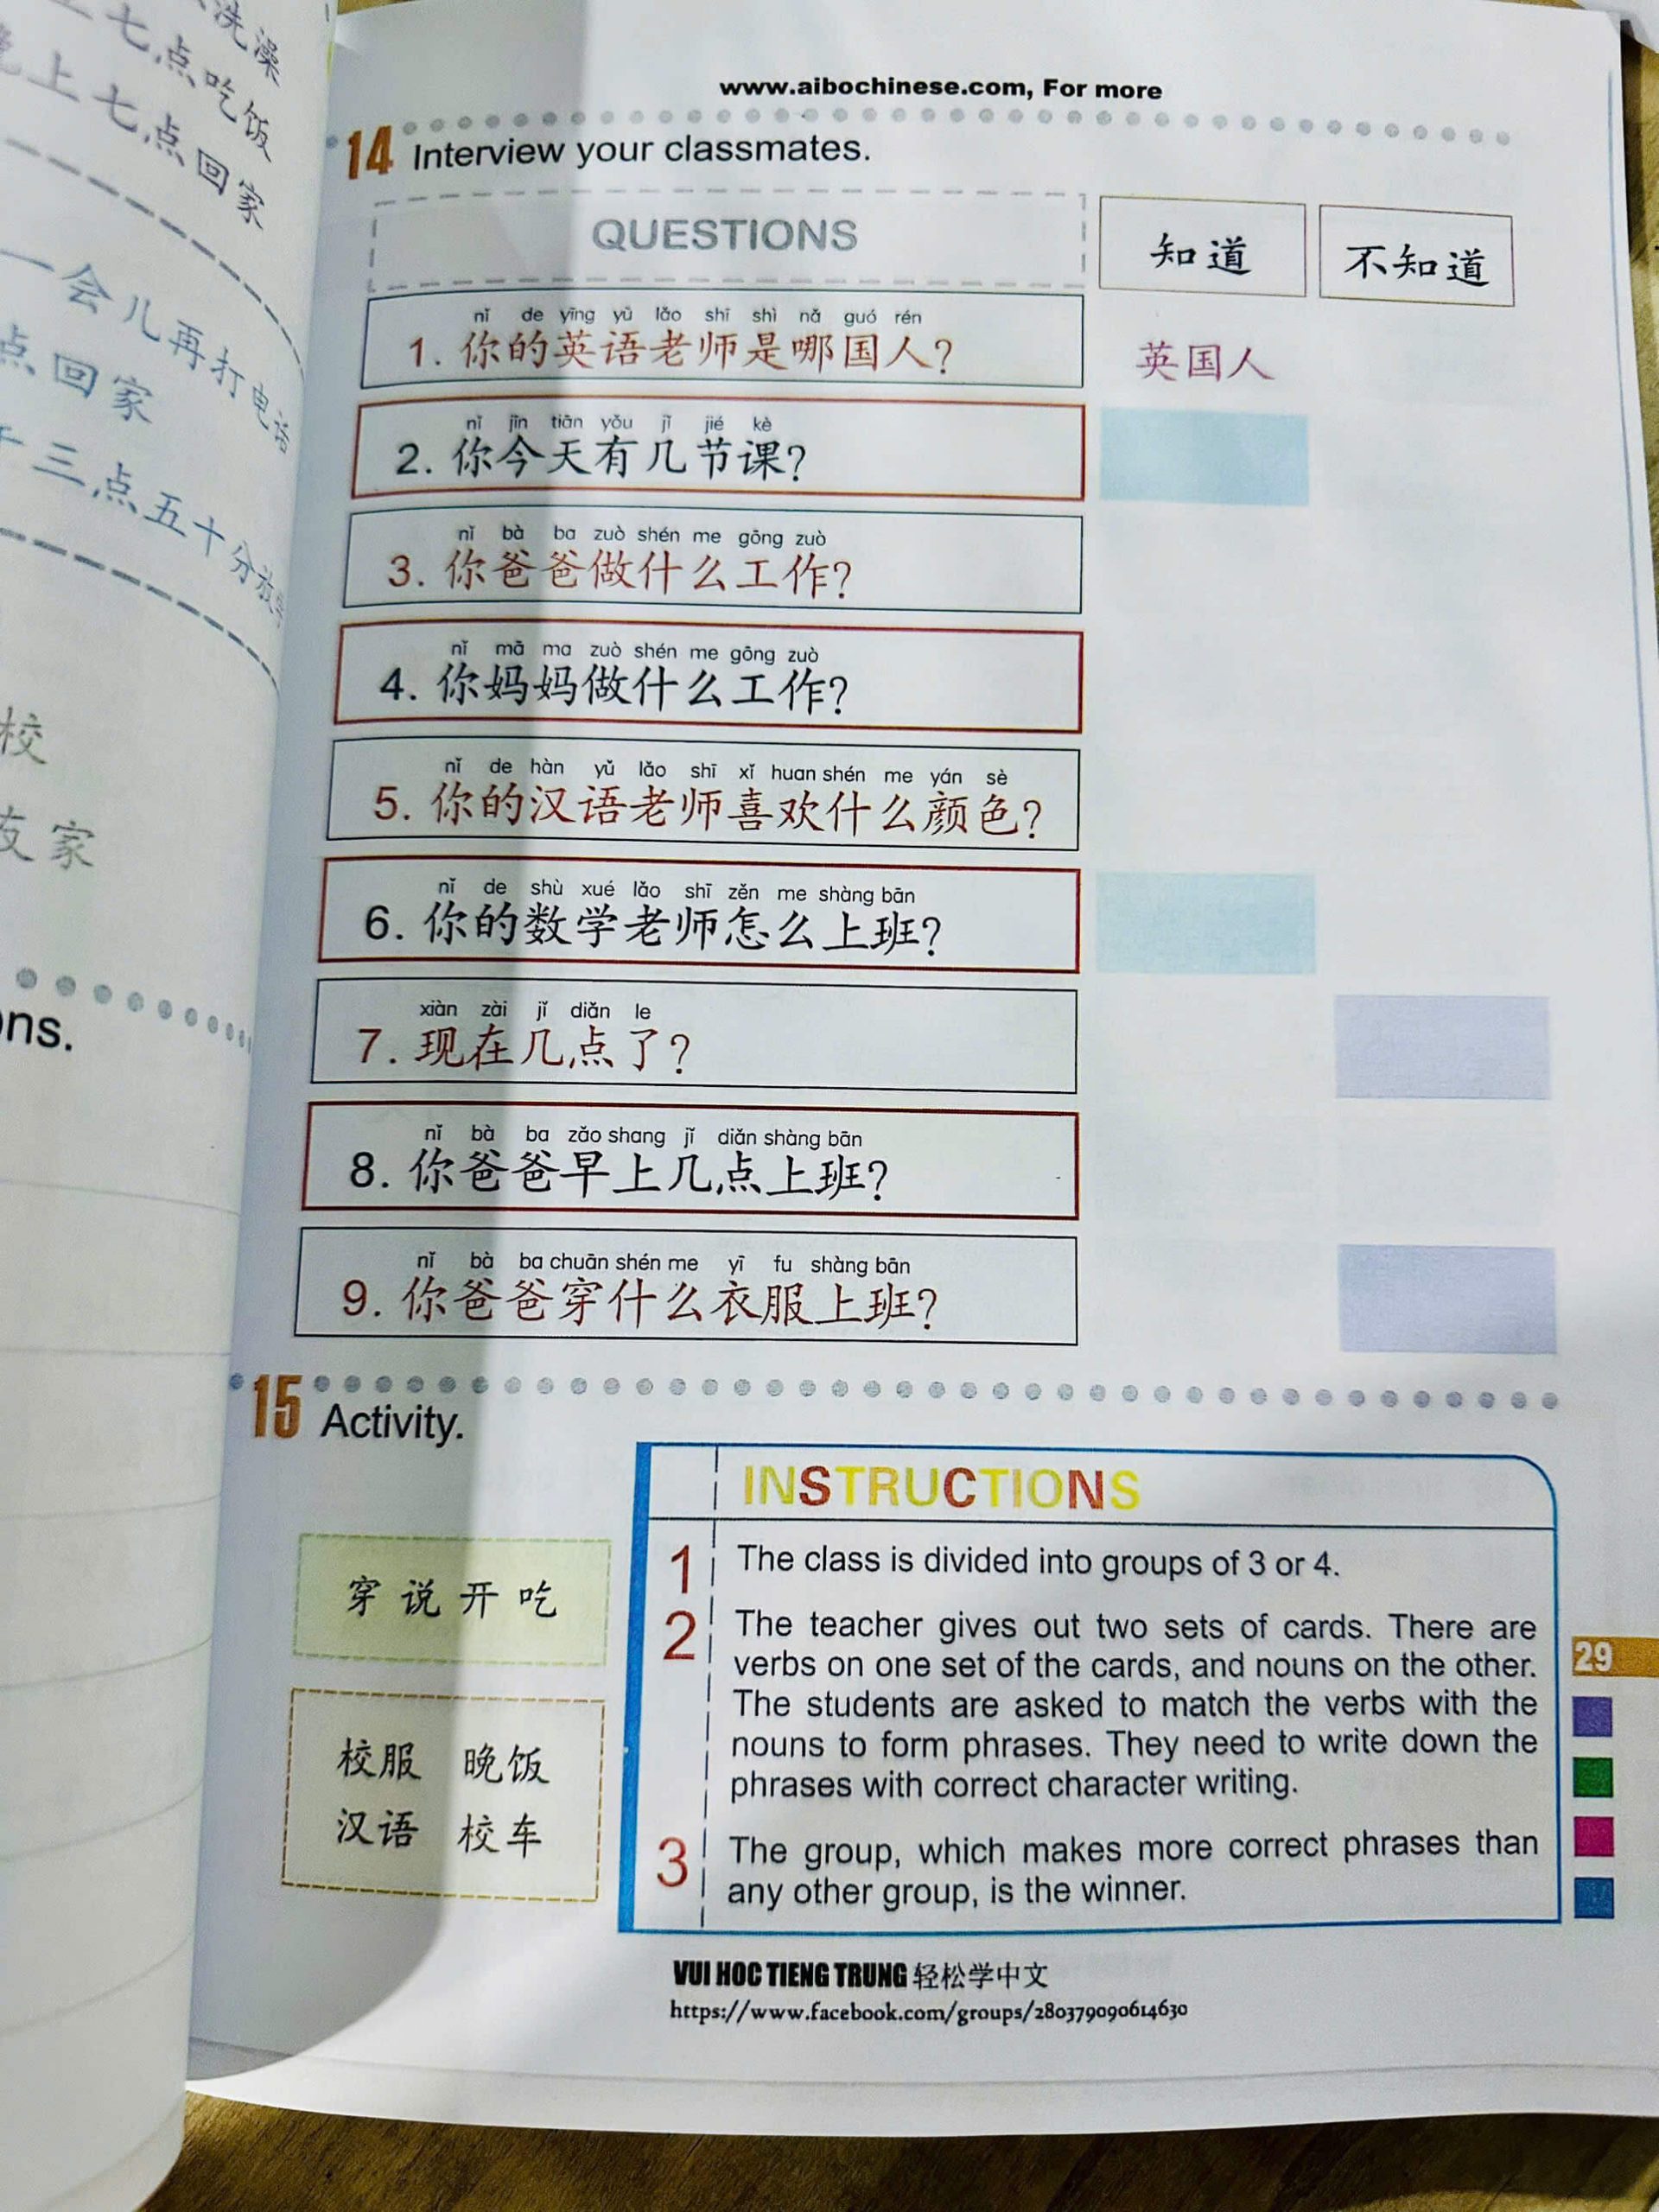 洗澡
七点吃饭
晚上七点回家
一会儿再打电话
点回家
十三点五十分放学
校
友家
ns.
www.aibochinese.com, For more
14 Interview your classmates.
QUESTIONS
知道
不知道
nǐ de yīng yǔ lǎo shī shì nǎ guó rén
1. 你的英语老师是哪国人?
英国人
nǐ jīn tiān yǒu jǐ jié kè
2. 你今天有几节课?
nǐ bà ba zuò shén me gōng zuò
3. 你爸爸做什么工作?
nǐ mā ma zuò shén me gōng zuò
4. 你妈妈做什么工作?
nǐ de hàn yǔ lǎo shī xǐ huan shén me yán sè
5. 你的汉语老师喜欢什么颜色?
nǐ de shù xué lǎo shī zěn me shàng bān
6. 你的数学老师怎么上班?
xiàn zài jǐ diǎn le
7. 现在几点了?
nǐ bà ba zǎo shang jǐ diǎn shàng bān
8. 你爸爸早上几点上班?
nǐ bà ba chuān shén me yī fu shàng bān
9. 你爸爸穿什么衣服上班?
15 Activity.
穿 说 开 吃
校服 晚饭
汉语 校车
INSTRUCTIONS
1 The class is divided into groups of 3 or 4.
2 The teacher gives out two sets of cards. There are
verbs on one set of the cards, and nouns on the other.
The students are asked to match the verbs with the
nouns to form phrases. They need to write down the
phrases with correct character writing.
3 The group, which makes more correct phrases than
any other group, is the winner.
29
VUI HOC TIENG TRUNG 轻松学中文
https://www.facebook.com/groups/280379090614630